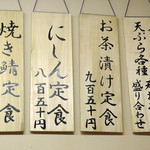 天ぷら各種
盛り合わせ
お茶漬け定食
九百五十円
にしん定食
八百五十円
焼き鯖定食